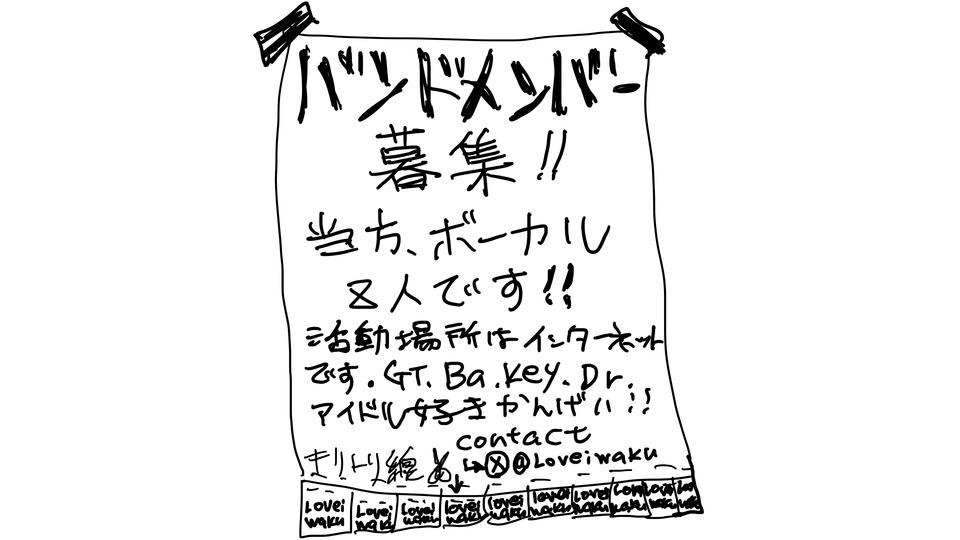 バンドメンバー
募集!!
当方、ボーカル
8人です!!
活動場所はインターネット
です. GT. Ba. Key. Dr.
アイドル好きかんげい!!
contact
↳Ⓧ@Loveiwaku
キリトリ線
Lovei waku
Lovei waku
Lovei waku
Lovei waku
Lovei waku
Lovei waku
Lovei waku
Lovei waku